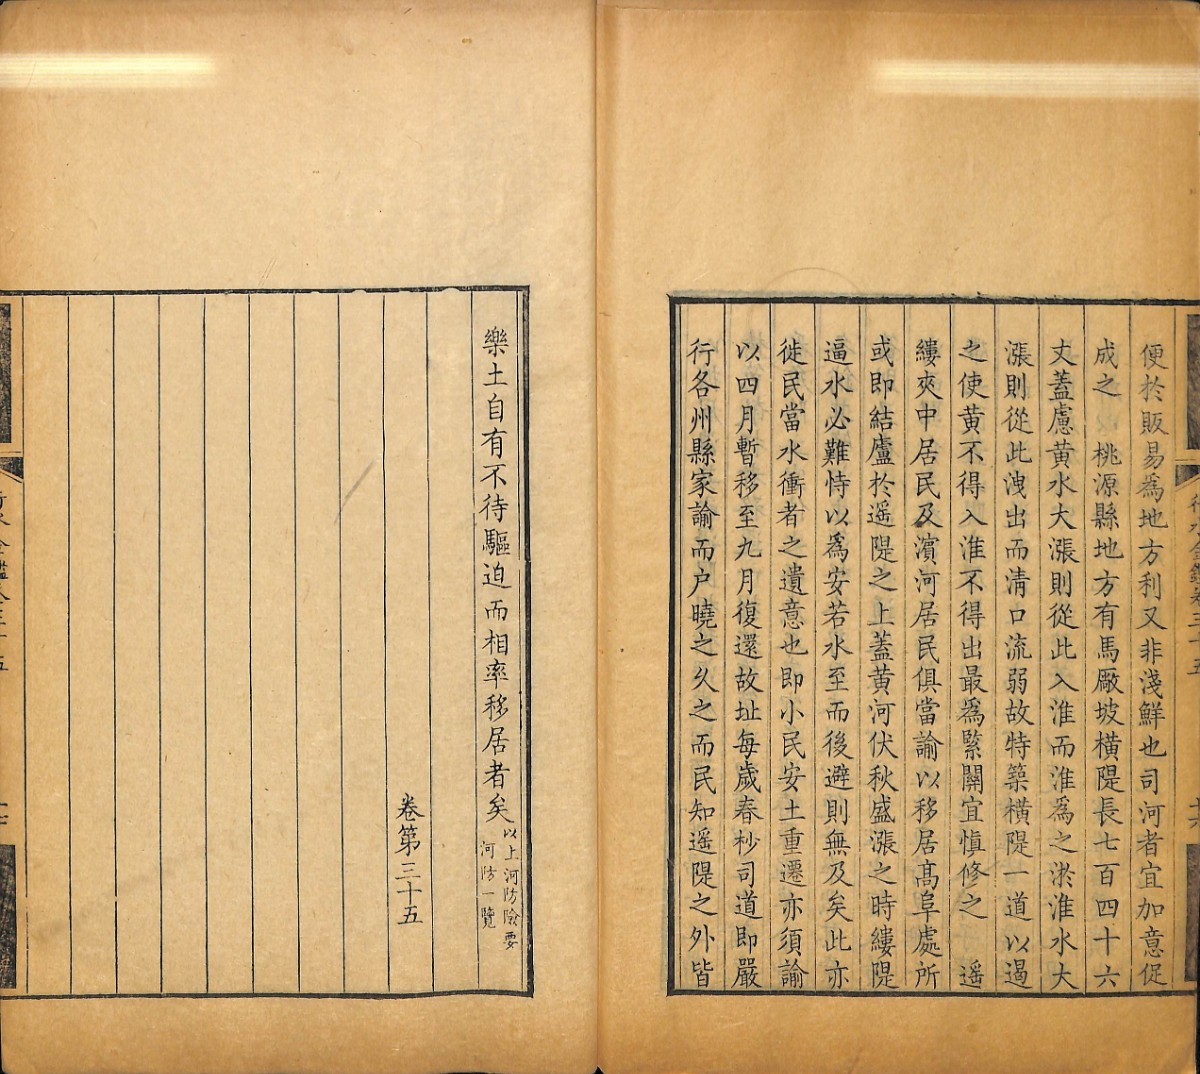 便於販易爲地方利又非淺鮮也司河者宜加意促
成之 桃源縣地方有馬厰坡橫隄長七百四十六
丈蓋慮黄水大漲則從此入淮而淮爲之淤淮水大
漲則從此洩出而淸口流弱故特築橫隄一道以遏
之使黄不得入淮不得出最爲緊關宜愼修之 遥
縷夾中居民及濵河居民俱當諭以移居高阜處所
或即結廬於遥隄之上蓋黄河伏秋盛漲之時縷隄
逼水必難恃以爲安若水至而後避則無及矣此亦
徙民當水衝者之遺意也即小民安土重遷亦須諭
以四月暫移至九月復還故址每歲春杪司道即嚴
行各州縣家諭而户曉之久之而民知遥隄之外皆
樂土自有不待驅迫而相率移居者矣以上河防險要
河防一覽
卷第三十五